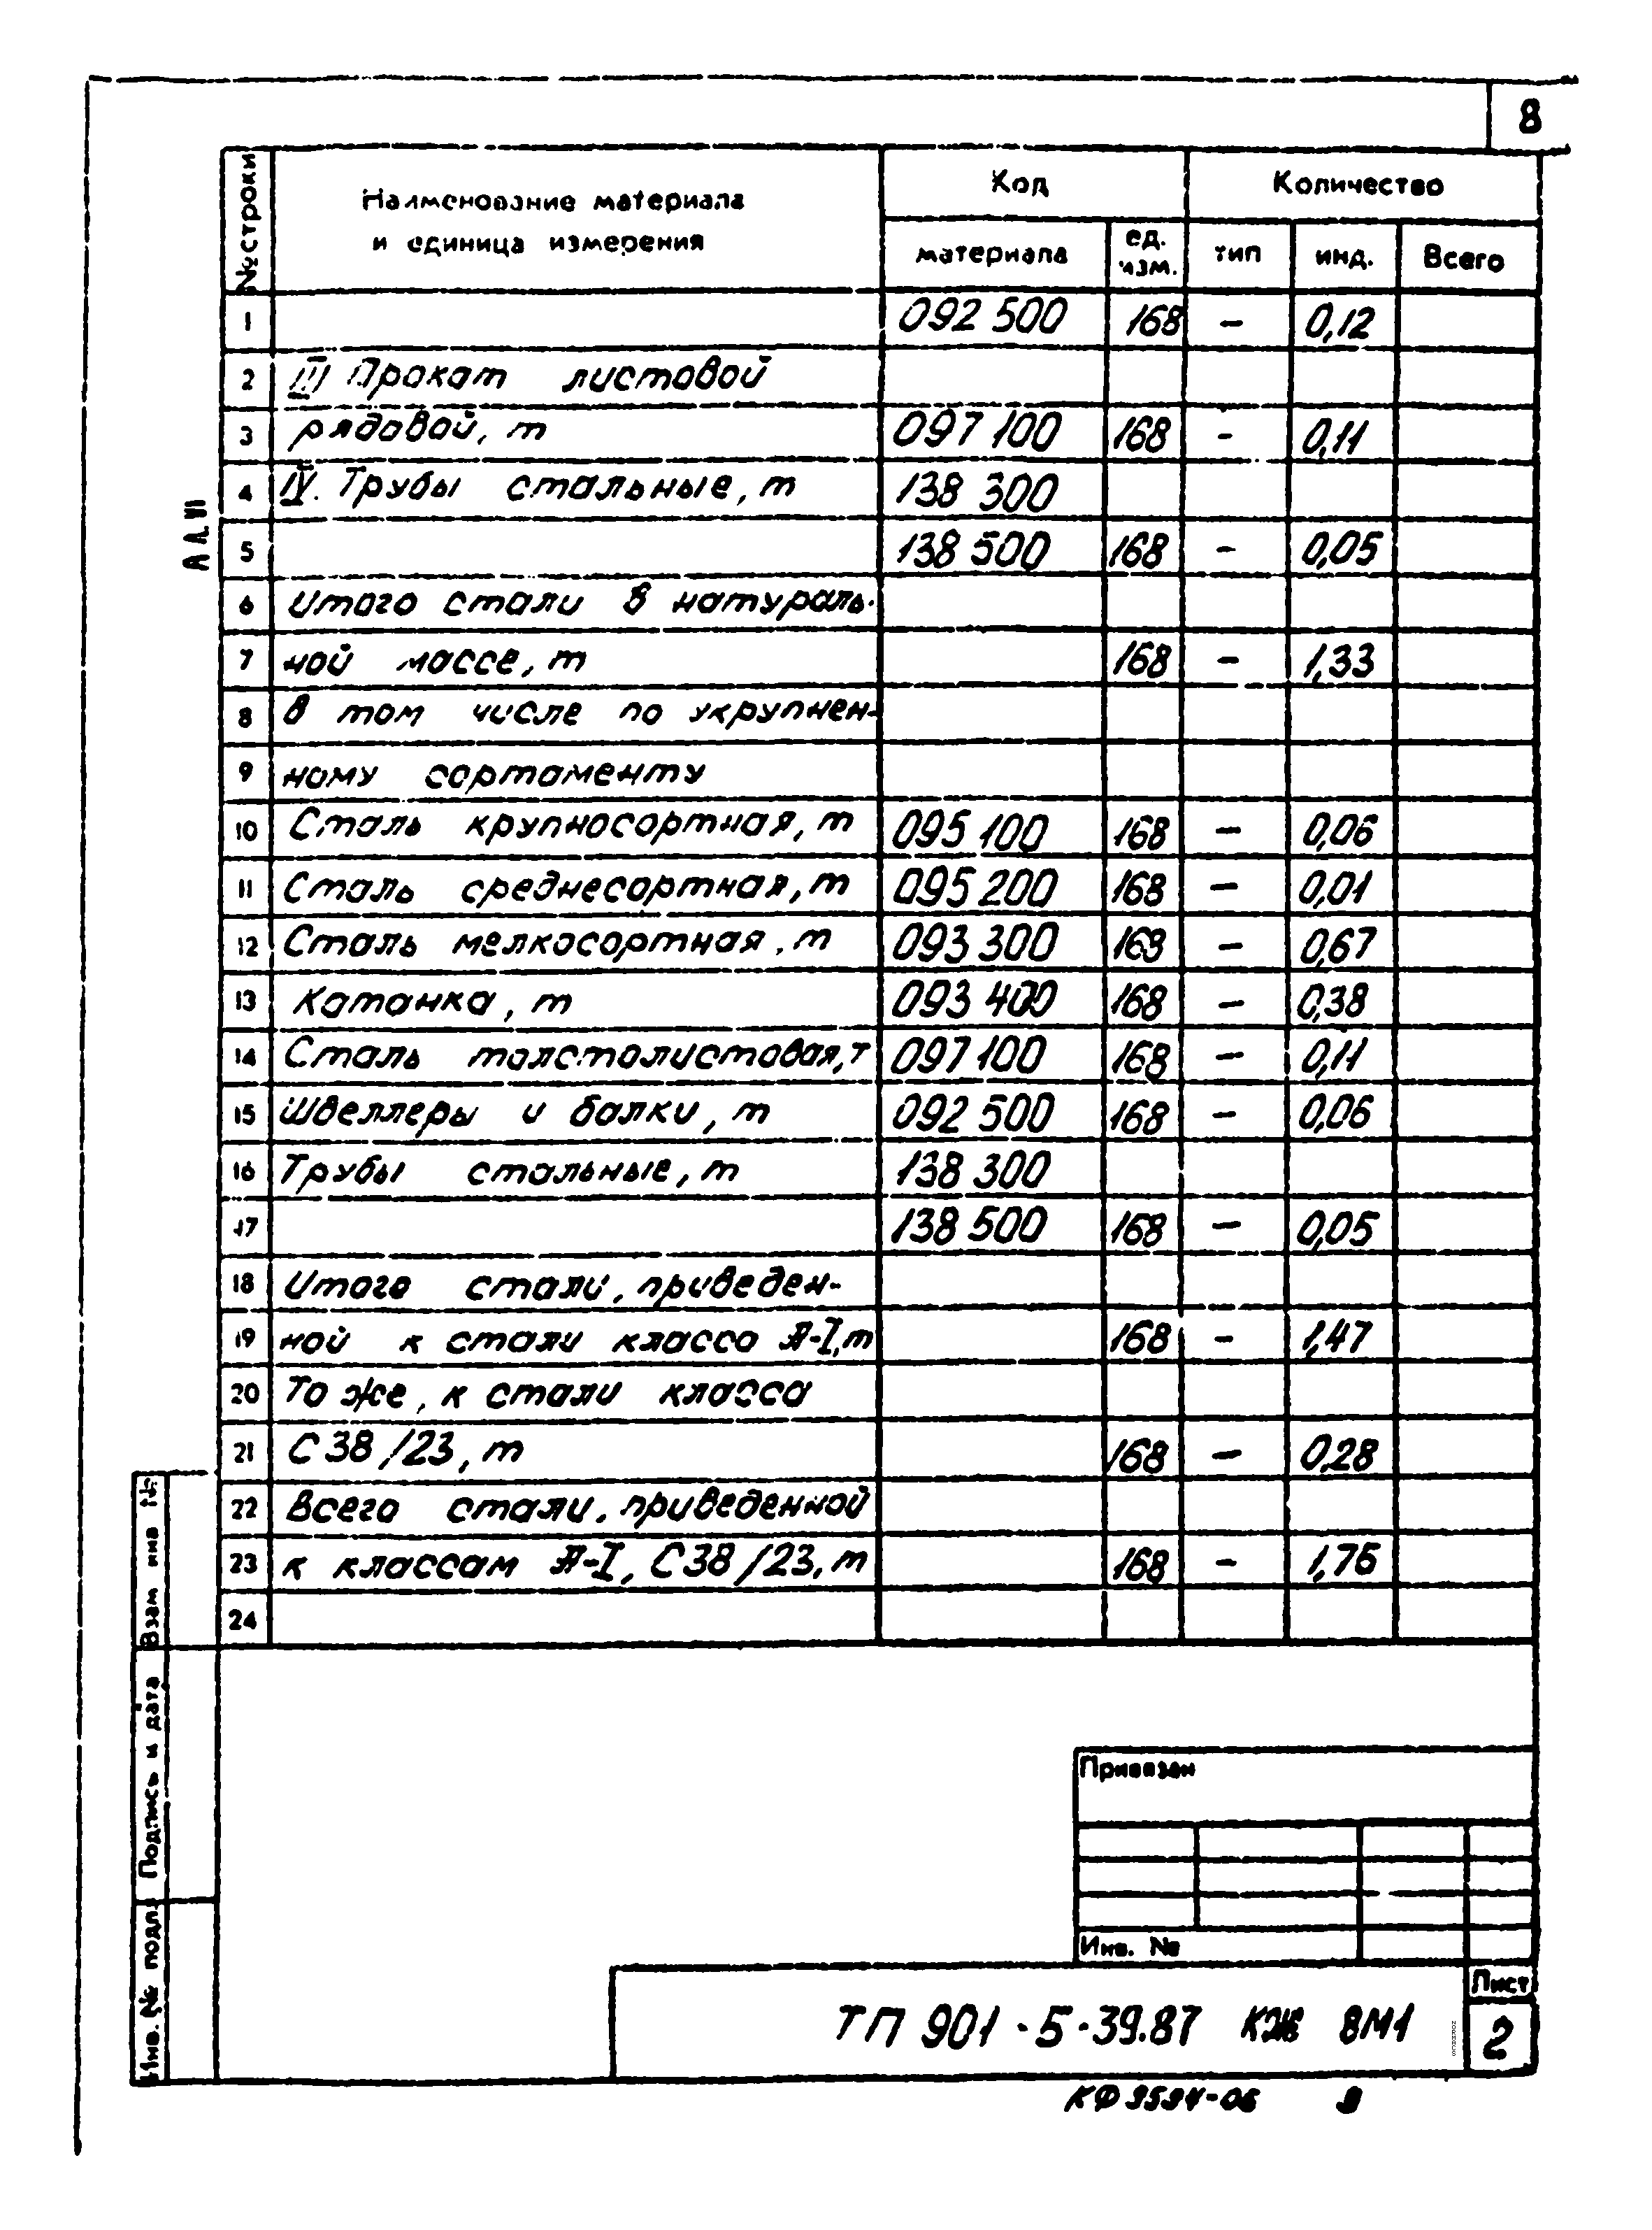 8
№ строки
Наименование материала
и единица измерения
Код
Количество
материала
ед.
изм.
тип
инд.
Всего
1 092 500 168 – 0,12
2 III Прокат листовой
3 рядовой, т 097 100 168 – 0,11
4 IV. Трубы стальные, т 138 300
5 138 500 168 – 0,05
6 Итого стали в натураль-
7 ной массе, т 168 – 1,33
8 В том числе по укрупнен-
9 ному сортаменту
10 Сталь крупносортная, т 095 100 168 – 0,06
11 Сталь среднесортная, т 095 200 168 – 0,01
12 Сталь мелкосортная, т 093 300 168 – 0,67
13 Катанка, т 093 400 168 – 0,38
14 Сталь толстолистовая, т 097 100 168 – 0,11
15 Швеллеры и балки, т 092 500 168 – 0,06
16 Трубы стальные, т 138 300
17 138 500 168 – 0,05
18 Итого стали, приведен-
19 ной к стали класса А-I, т 168 – 1,47
20 То же, к стали класса
21 С 38/23, т 168 – 0,28
22 Всего стали, приведенной
23 к классам А-I, С 38/23, т 168 –
24
Ал. VI
Взам инв №
Подпись и дата
Инв. № подл.
Привязан
Инв. №
ТП 901-5-39.87 КЖ ВМ1
Лист
2
КФ 9594-06 9